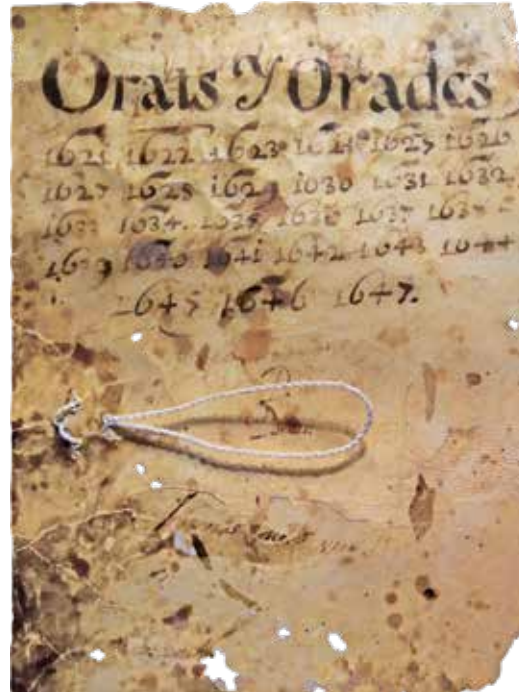 Orats y Orades
1621 1622 1623 1624 1625 1626
1627 1628 1629 1630 1631 1632
1633 1634. 1635 1636 1637 1638
1639 1640 1641 1642 1643 1644
1645 1646 1647.